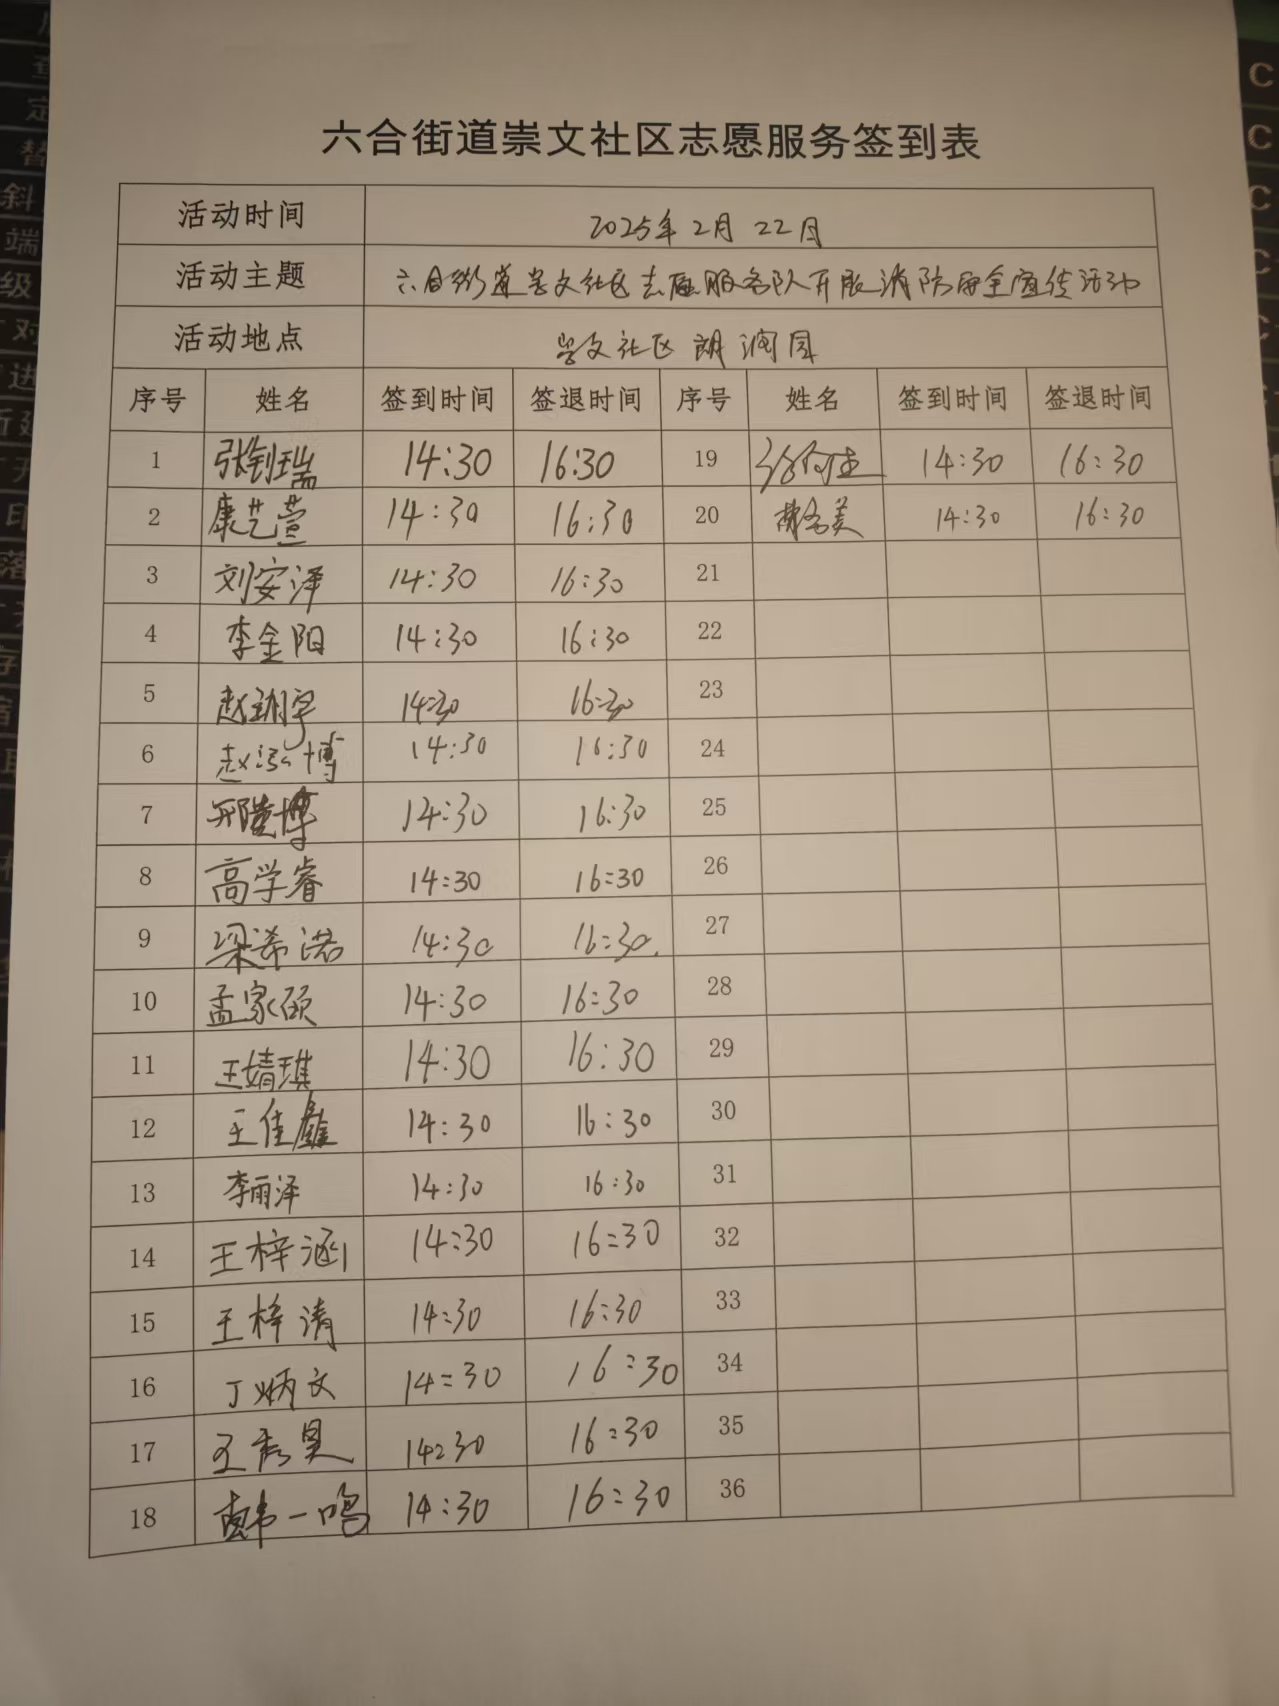 六合街道崇文社区志愿服务签到表
活动时间 2025年2月22日
活动主题 六合街道崇文社区志愿服务队开展消防安全宣传活动
活动地点 崇文社区 朗润园
序号 姓名 签到时间 签退时间 序号 姓名 签到时间 签退时间
1 张钊瑞 14:30 16:30 19 14:30 16:30
2 康艺萱 14:30 16:30 20 14:30 16:30
3 刘安泽 14:30 16:30 21
4 李金阳 14:30 16:30 22
5 14:30 16:30 23
6 赵泓博 14:30 16:30 24
7 14:30 16:30 25
8 高学睿 14:30 16:30 26
9 梁希诺 14:30 16:30. 27
10 孟家硕 14:30 16:30 28
11 王婧琪 14:30 16:30 29
12 王佳鑫 14:30 16:30 30
13 李雨泽 14:30 16:30 31
14 王梓涵 14:30 16:30 32
15 王梓清 14:30 16:30 33
16 丁炳文 14:30 16:30 34
17 14:30 16:30 35
18 韩一鸣 14:30 16:30 36